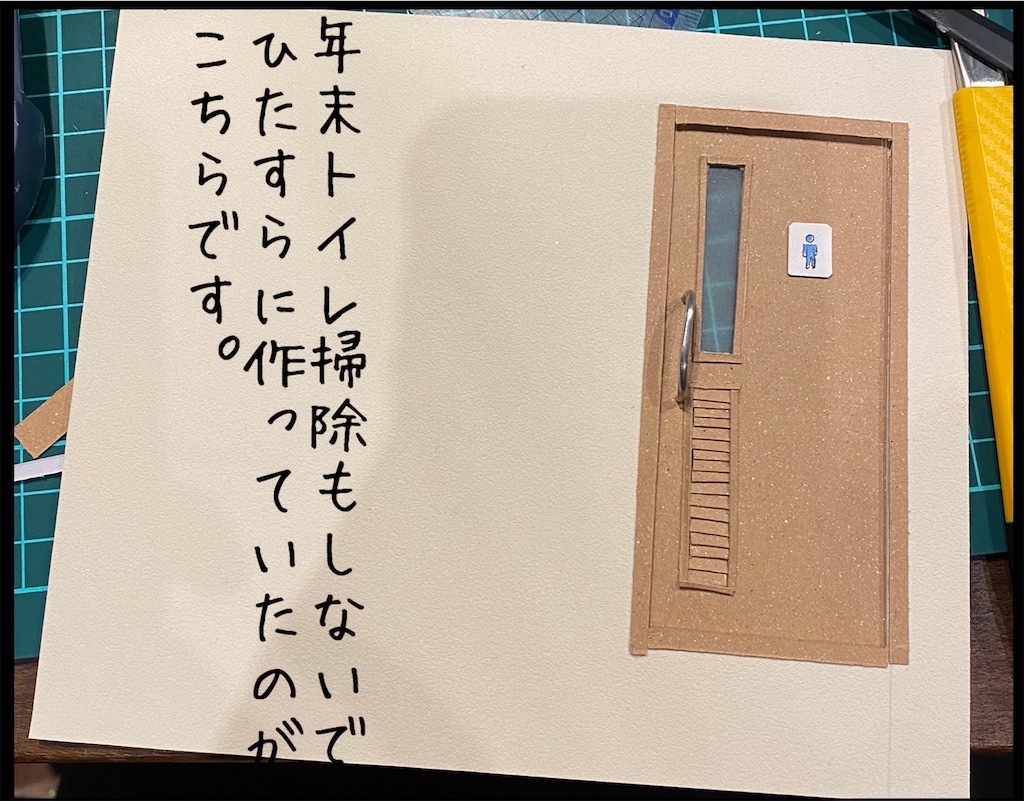 年末トイレ掃除もしないで
ひたすらに作っていたのが
こちらです。